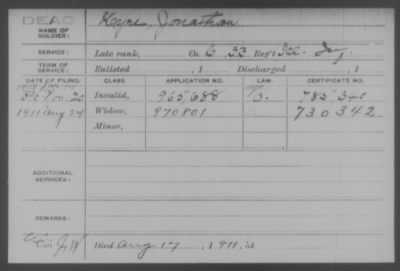 DEAD
Keyes, Jonathan
NAME OF SOLDIER:
SERVICE:
Late rank, Co. C, 33 Reg't Ill. Inf
TERM OF SERVICE:
Enlisted , 1 Discharged , 1
DATE OF FILING. CLASS APPLICATION NO. LAW. CERTIFICATE NO.
Nov. 20 Invalid, 965688
1911 Aug 24 Widow, 970801 730342
Minor,
ADDITIONAL SERVICES:
REMARKS:
Died Aug 17, 1911, at